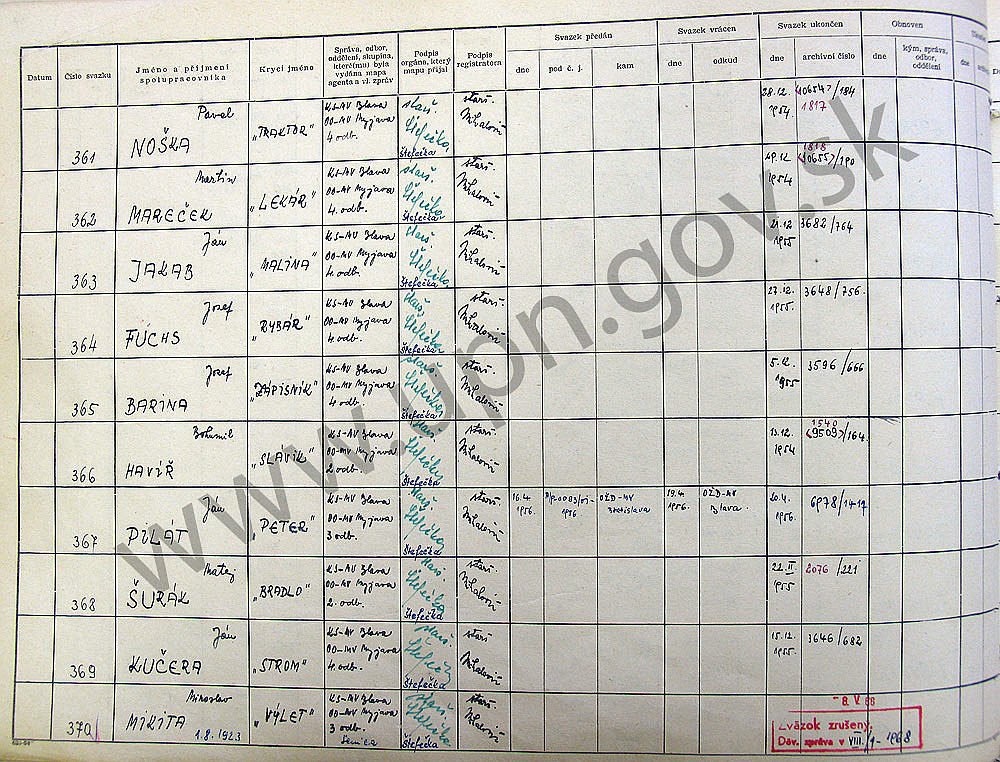 Datum
Číslo svazku
Jméno a příjmení
spolupracovníka
Krycí jméno
Správa, odbor,
oddělení, skupina,
které(mu) byla
vydána mapa
agenta a vl. zpráv
Podpis
orgána, který
mapu přijal
Podpis
registratora
Svazek předán
dne
pod č. j.
kam
Svazek vrácen
dne
odkud
Svazek ukončen
dne
archivní číslo
Obnoven
dne
kým, správa,
odbor,
oddělení
dne
361
Pavel
NOŠKA
„TRAKTOR"
KS-MV Blava
OO-MV Myjava
4 odb.
starš.
Štefečka
Štefečka
starš.
28.12.
1954
<10654>/184
1817
362
Martin
MAREČEK
„LEKÁR"
KS-MV Blava
OO-MV Myjava
4. odb.
starš.
Štefečka
Štefečka
starš.
29.12
1954
1818
<10655>/190
363
Ján
JAKAB
„MALINA"
KS-MV Blava
OO-MV Myjava
4 odb.
starš.
Štefečka
Štefečka
starš.
21.12
1955
3682/764
364
Jozef
FUCHS
„RYBÁR"
KS-MV Blava
OO-MV Myjava
4 odb.
starš.
Štefečka
Štefečka
starš.
27.12.
1955.
3648/756.
365
Jozef
BARINA
„ZÁPISNÍK"
KS-MV Blava
OO-MV Myjava
4 odb.
starš.
Štefečka
Štefečka
starš.
5.12.
1955
3596/666
366
Bohumil
HAVÍŘ
„SLÁVIK"
KS-MV Blava
OO-MV Myjava
2 odb.
starš.
Štefečka
Štefečka
starš.
13.12.
1954
1540
<9509>/164.
367
Ján
PILÁT
„PETER"
KS-MV Blava
OO-MV Myjava
3 odb.
starš.
Štefečka
Štefečka
starš.
16.4.
1956.
OŽD-MV
Bratislava
19.4.
1956.
OŽD-MV
Blava.
20.4.
1956.
6978/1417
368
Matej
ŠURÁK
„BRADLO"
KS-MV Blava
OO-MV Myjava
2. odb.
starš.
Štefečka
Štefečka
starš.
22.II.
1955
2076/221
369
Ján
KUČERA
„STROM"
KS-MV Blava
OO-MV Myjava
4. odb.
starš.
Štefečka
Štefečka
starš.
15.12.
1955.
3646/682
370
Miroslav
MIKITA
1.8.1923
„VÝLET"
KS-MV Blava
OO-MV Myjava
3 odb.
Senica
starš.
Štefečka
Štefečka
starš.
-8.V.68
Zväzok zrušený.
Dův. zpráva v VIII/1-1968
www.upn.gov.sk